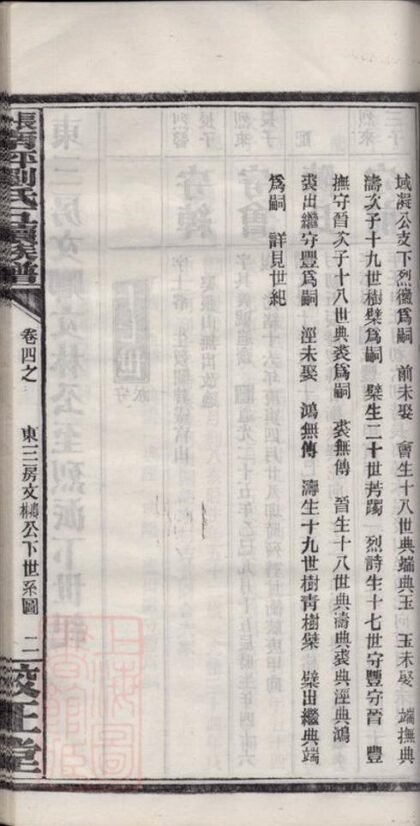 域凝公支下烈黴爲嗣　前未娶　會生十八世典蝙典玉　玉未娶　端撫典
濤次子十九世樹檗爲嗣　檗生二十世芳躅　烈詩生十七世守豐守晉　豐
撫守晉次子十八世典裘爲嗣　裘無傳　晉生十八世典濤典裘典涇典鴻
裘出繼守豐爲嗣　涇未娶　鴻無傳　濤生十九世樹青樹檗　檗出繼典端
爲嗣　詳見世紀
劉氏五續族譜
卷四之
東三房文公下世系圖
二
校正堂